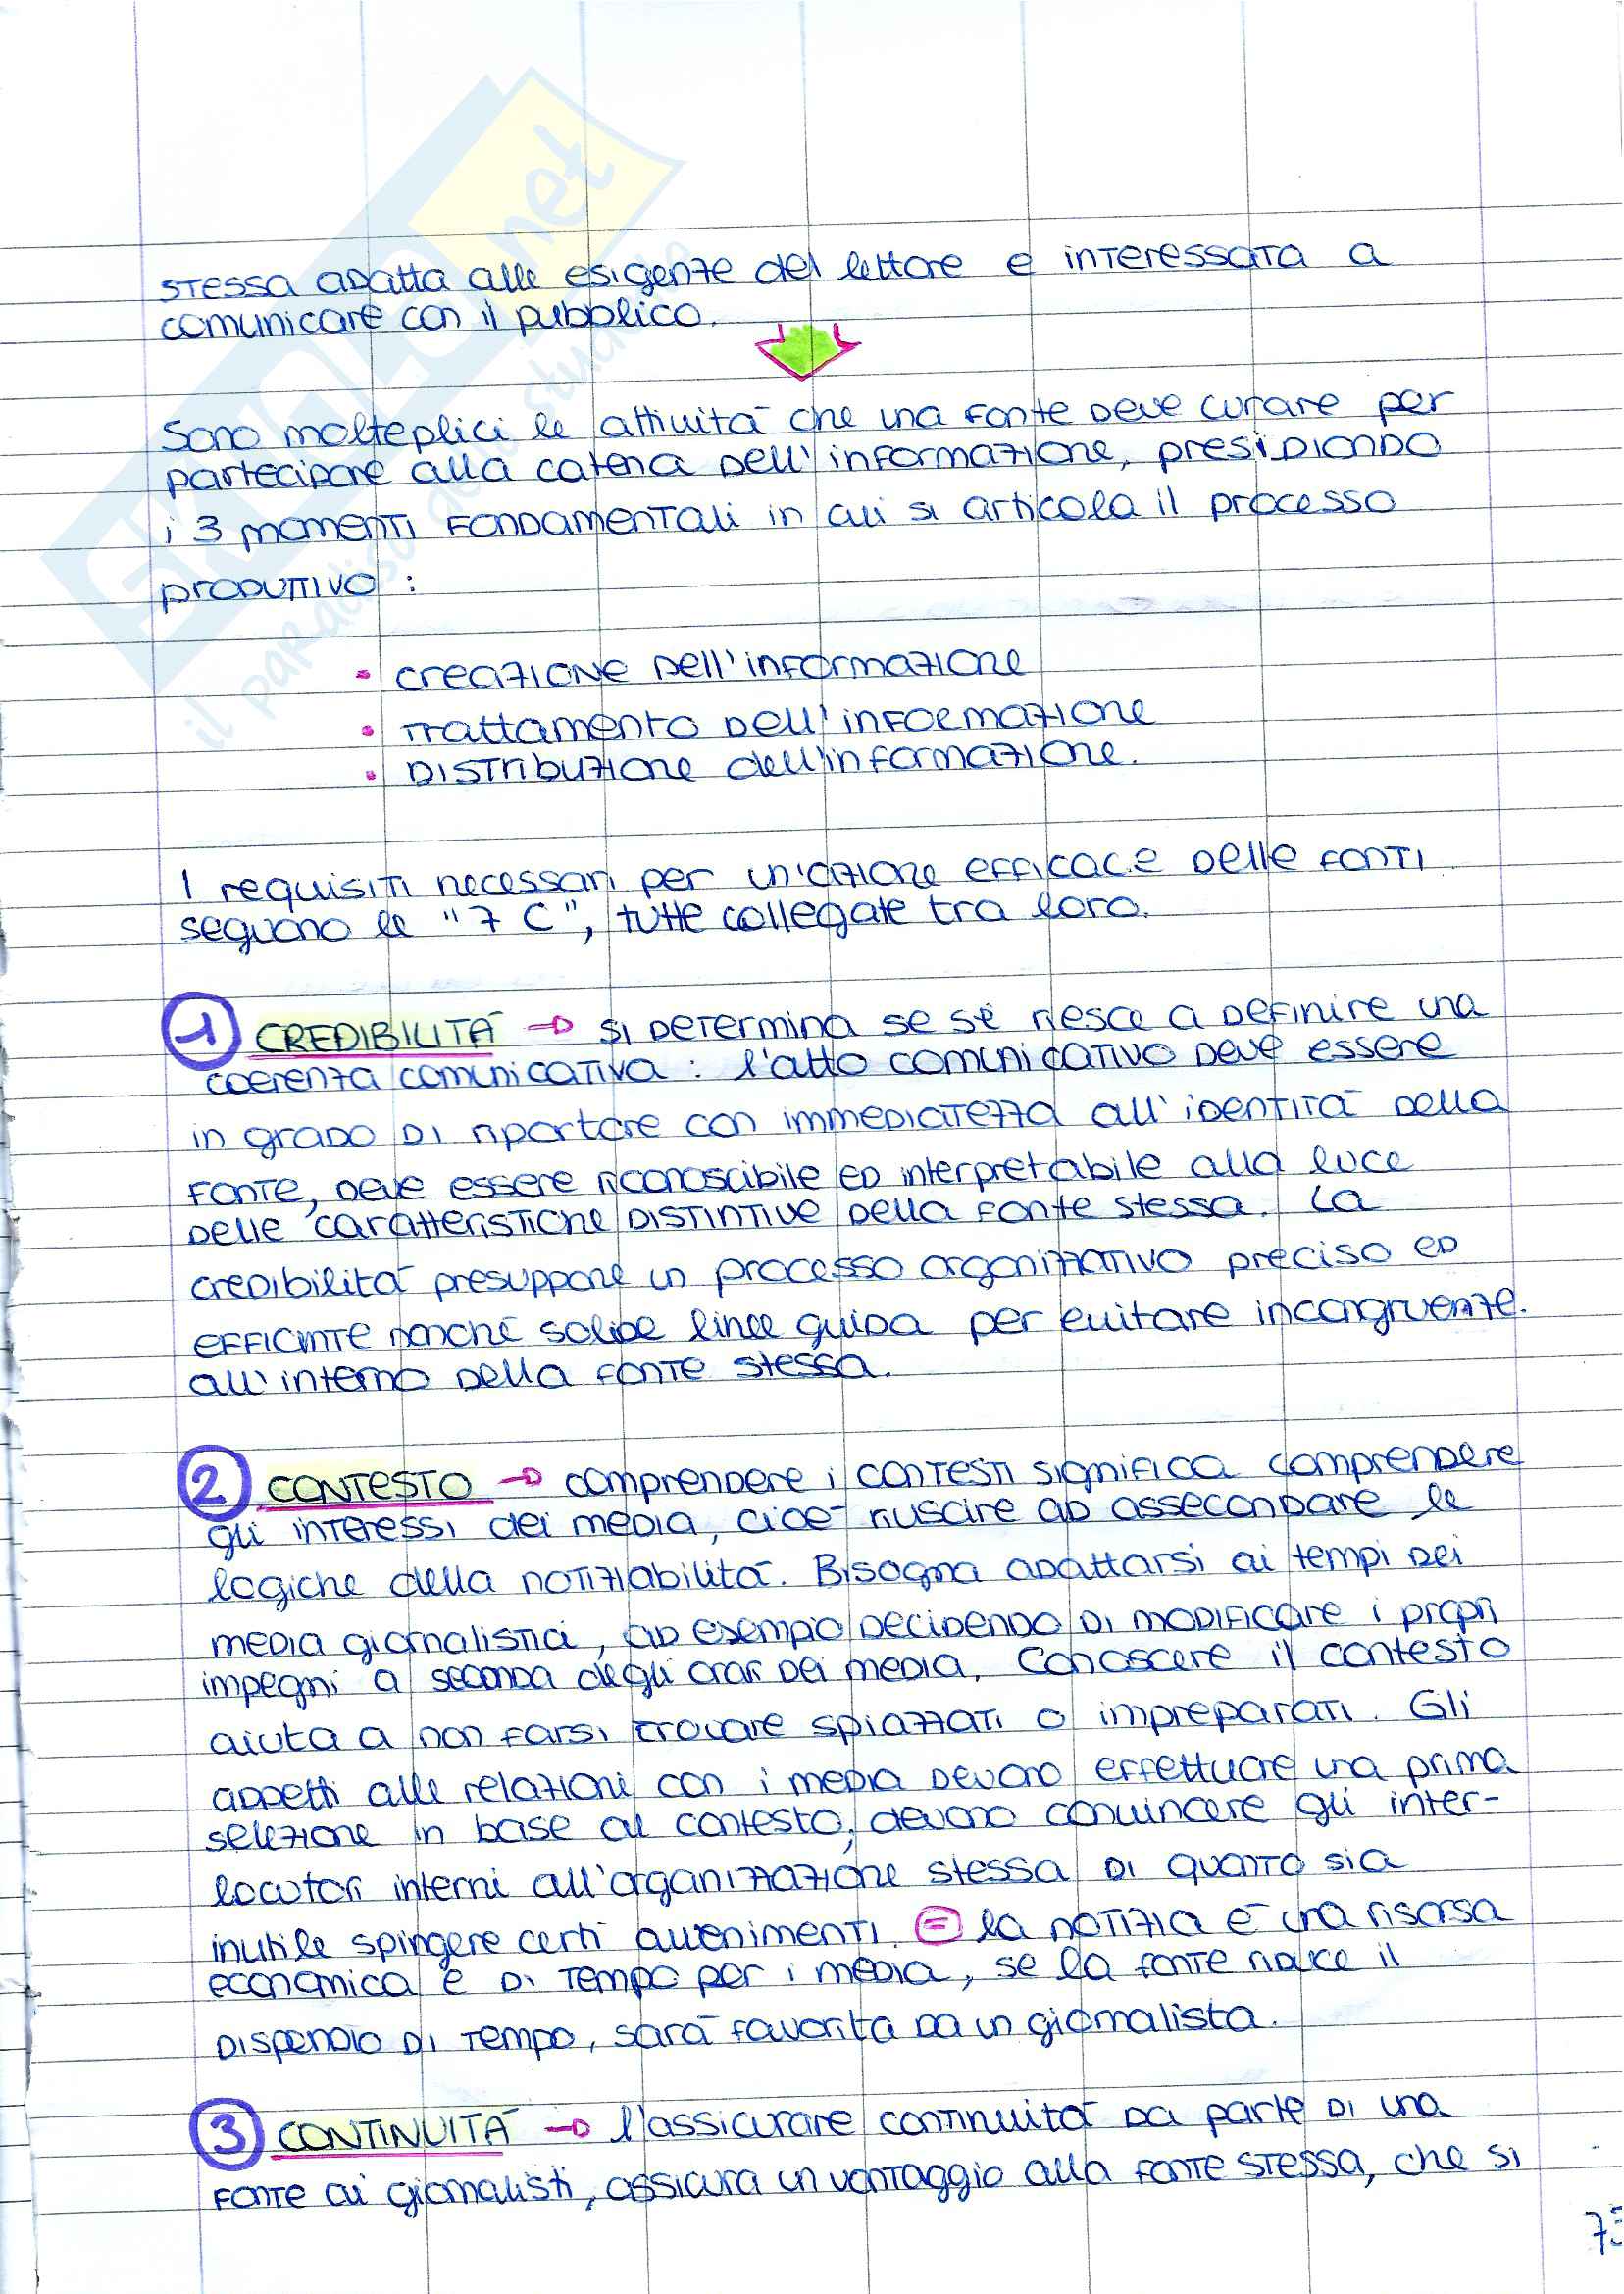 stessa adatta alle esigenze del lettore e interessata a
comunicare con il pubblico.
Sono molteplici le attività che una fonte deve curare per
partecipare alla catena dell'informazione, presidiando
i 3 momenti fondamentali in cui si articola il processo
produttivo:
• creazione dell'informazione
• trattamento dell'informazione
• distribuzione dell'informazione.
I requisiti necessari per un'azione efficace delle fonti
seguono le "7 C", tutte collegate tra loro.
1 CREDIBILITÀ → si determina se si riesce a definire una
coerenza comunicativa: l'atto comunicativo deve essere
in grado di riportare con immediatezza all'identità della
fonte, deve essere riconoscibile ed interpretabile alla luce
delle caratteristiche distintive della fonte stessa. La
credibilità presuppone un processo organizzativo preciso ed
efficinte nonché solide linee guida per evitare incongruenze.
all'interno della fonte stessa.
2 CONTESTO → comprendere i contesti significa comprendere
gli interessi dei media, cioè riuscire ad assecondare le
logiche della notiziabilità. Bisogna adattarsi ai tempi dei
media giornalistici, ad esempio decidendo di modificare i propri
impegni a seconda degli orari dei media. Conoscere il contesto
aiuta a non farsi trovare spiazzati o impreparati. Gli
addetti alle relazioni con i media devono effettuare una prima
selezione in base al contesto; devono convincere gli inter-
locutori interni all'organizzazione stessa di quanto sia
inutile spingere certi avvenimenti. = la notizia è una risorsa
economica e di tempo per i media, se la fonte riduce il
dispendio di tempo, sarà favorita da un giornalista.
3 CONTINUITÀ → l'assicurare continuità da parte di una
fonte ai giornalisti, assicura un vantaggio alla fonte stessa, che si
73
il paradiso dello studente